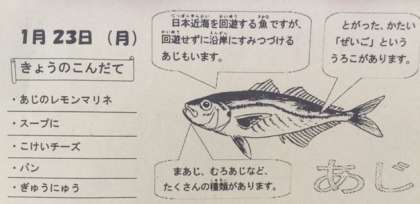 1月23日（月）
きょうのこんだて
・あじのレモンマリネ
・スープに
・こけいチーズ
・パン
・ぎゅうにゅう
日本近海を回遊する魚ですが、
回遊せずに沿岸にすみつづける
あじもいます。
とがった、かたい
「ぜいご」という
うろこがあります。
まあじ、むろあじなど、
たくさんの種類があります。
あじ